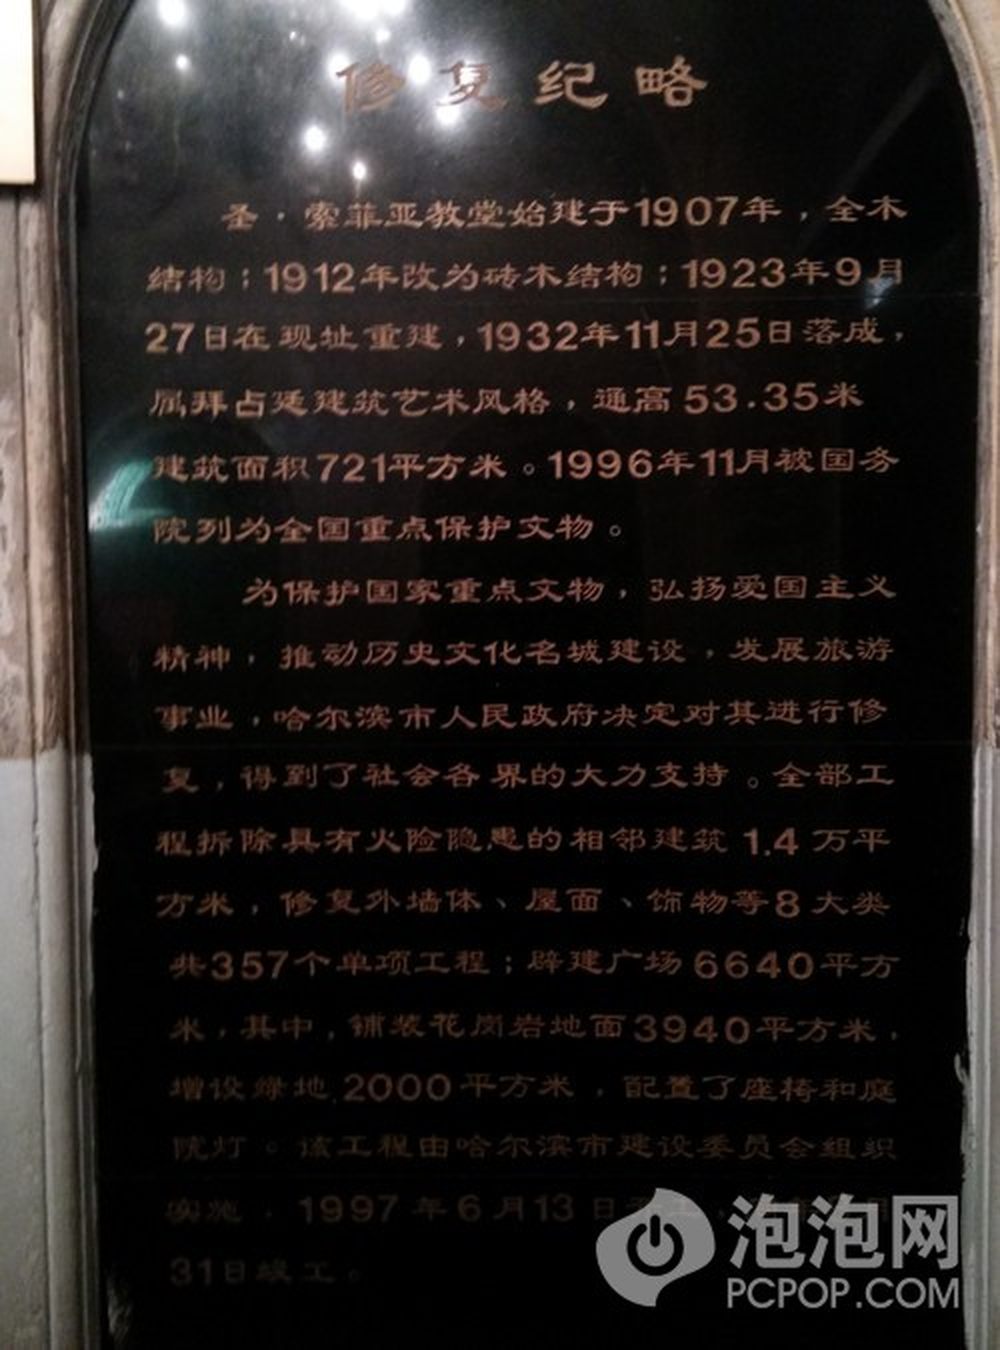 修复纪略
圣·索菲亚教堂始建于1907年，全木
结构；1912年改为砖木结构；1923年9月
27日在现址重建，1932年11月25日落成，
属拜占廷建筑艺术风格，通高53.35米
建筑面积721平方米。1996年11月被国务
院列为全国重点保护文物。
为保护国家重点文物，弘扬爱国主义
精神，推动历史文化名城建设，发展旅游
事业，哈尔滨市人民政府决定对其进行修
复，得到了社会各界的大力支持。全部工
程拆除具有火险隐患的相邻建筑1.4万平
方米，修复外墙体、屋面、饰物等8大类
共357个单项工程；辟建广场6640平方
米，其中，铺装花岗岩地面3940平方米，
增设绿地2000平方米，配置了座椅和庭
院灯。该工程由哈尔滨市建设委员会组织
实施，1997年6月13日
31日竣工。
泡泡网
PCPOP.COM